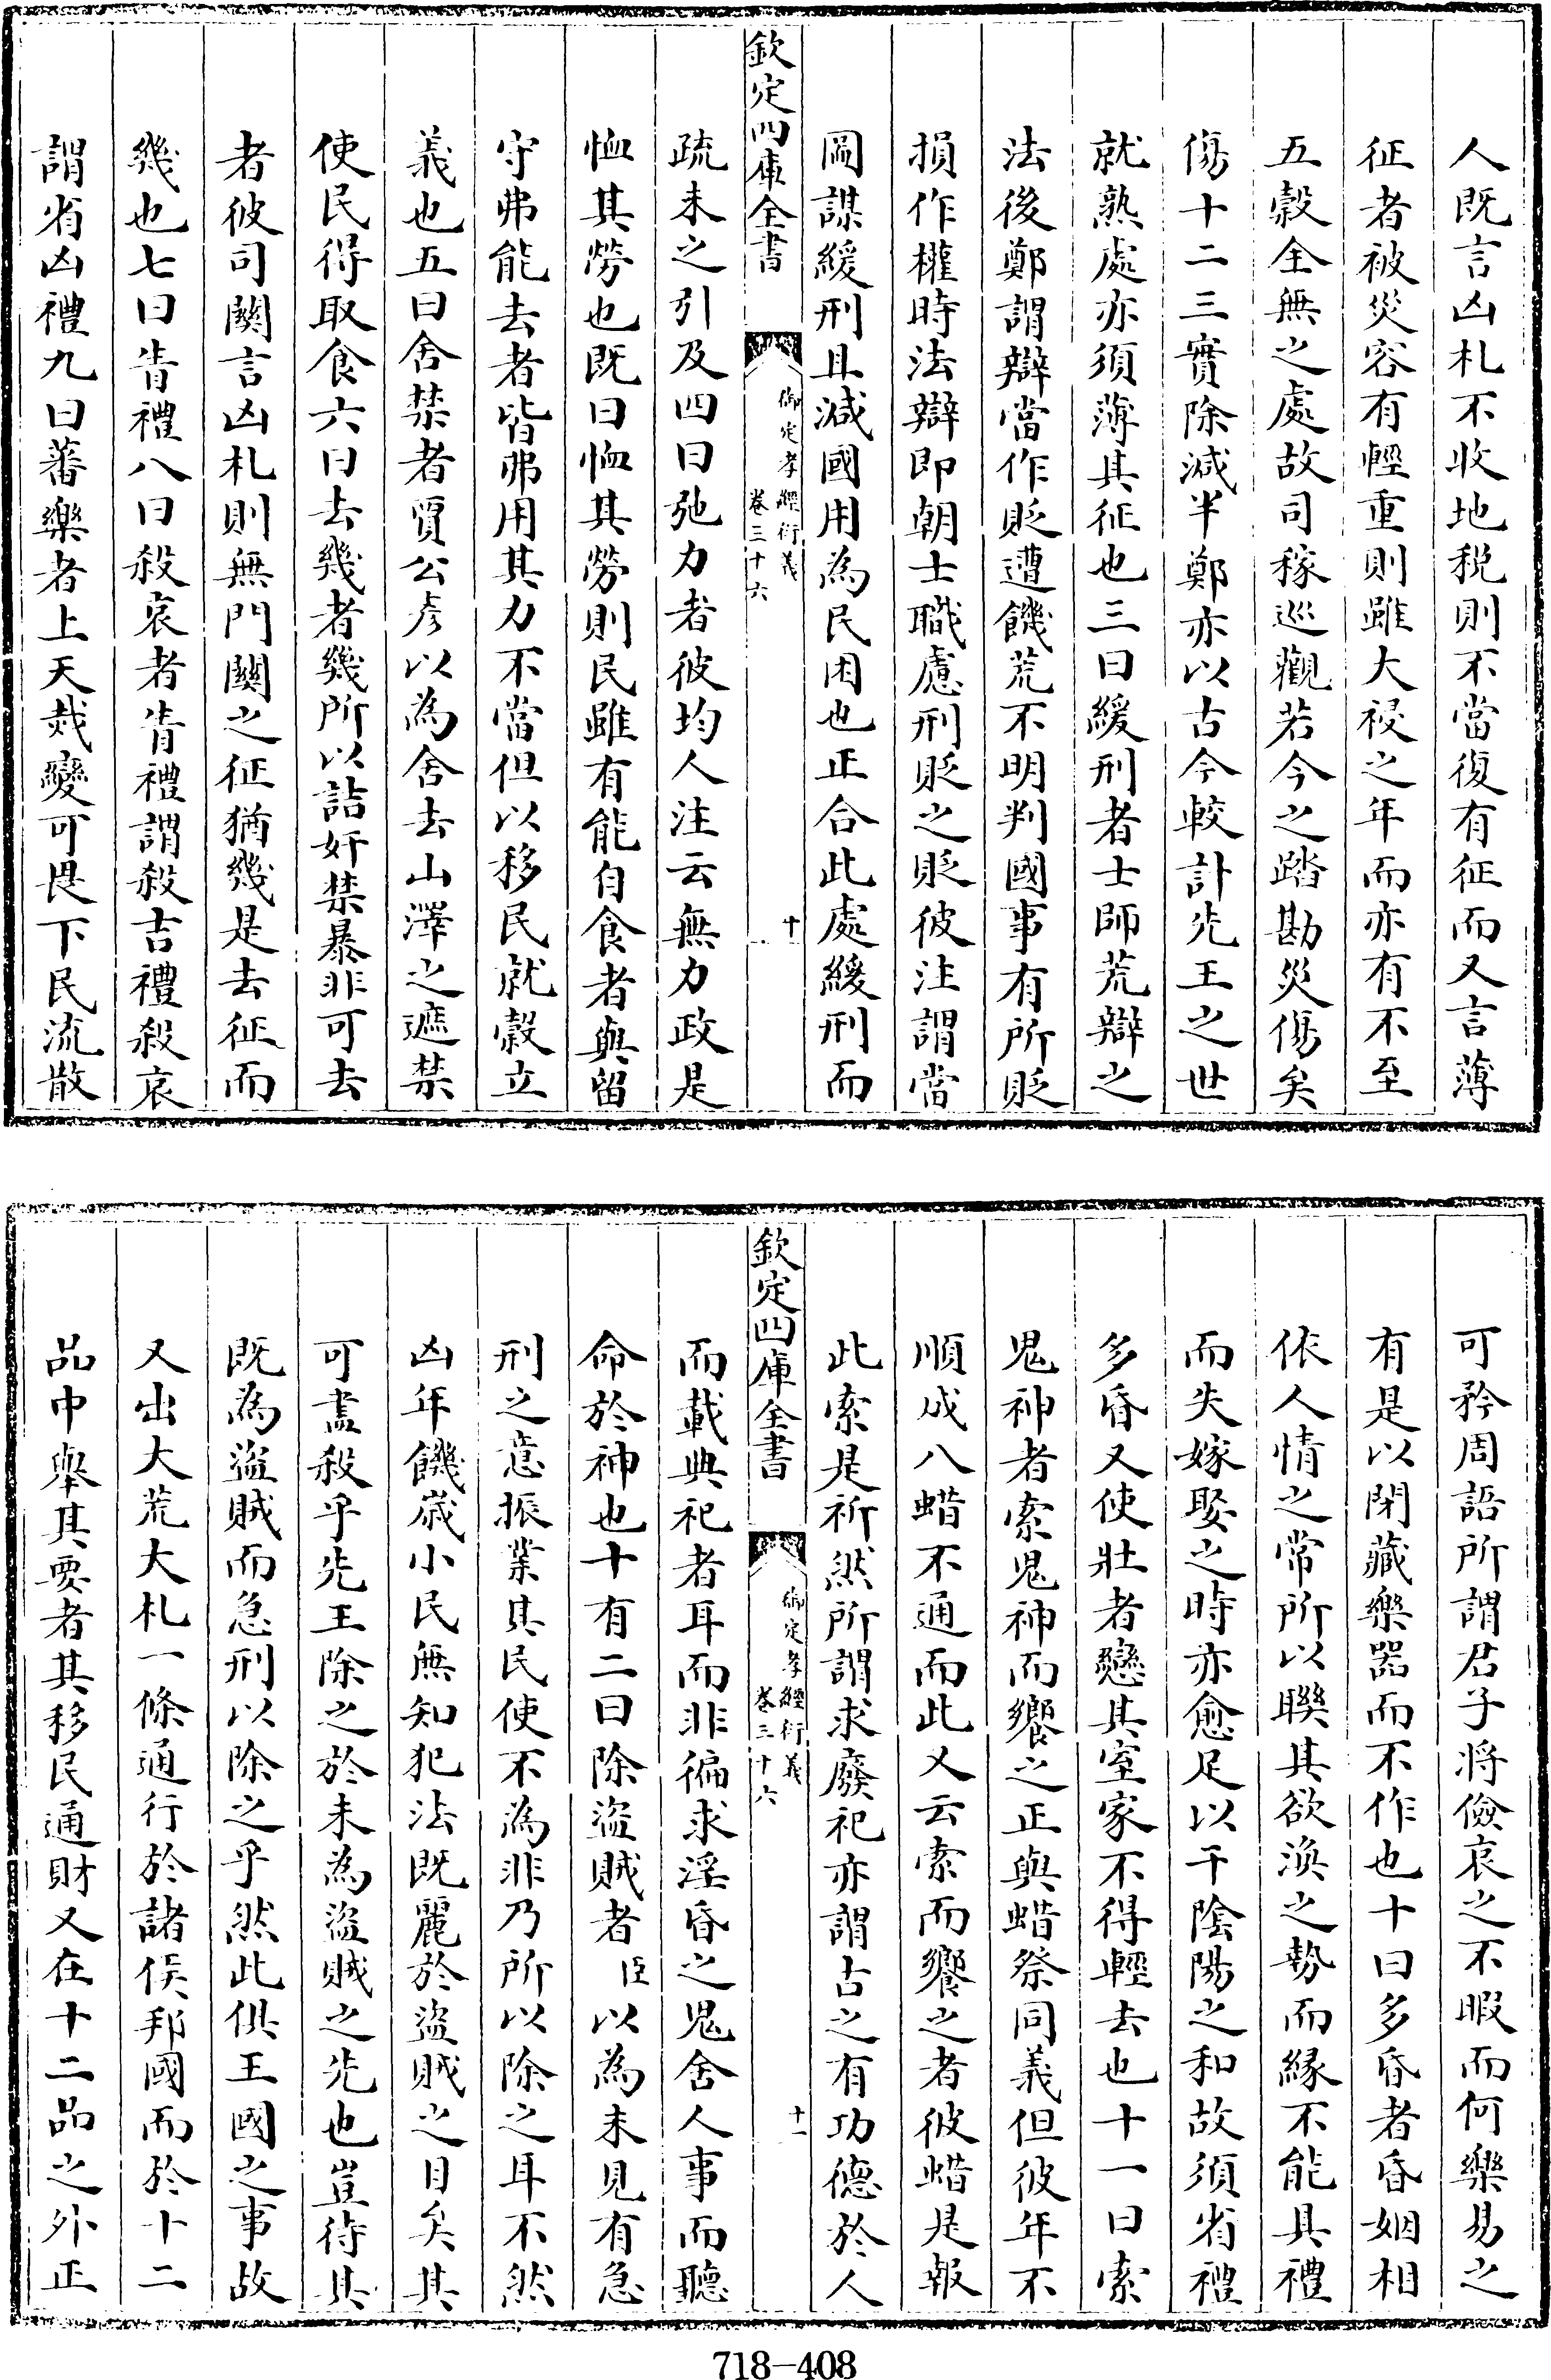 人既言凶札不收地税則不當復有征而又言薄
征者被災容有輕重則雖大祲之年而亦有不至
五穀全無之處故司稼巡觀若今之踏勘災傷矣
傷十二三實除減半鄭亦以古今較計先王之世
就熟處亦須薄其征也三曰緩刑者士師荒辯之
法後鄭謂辯當作貶遭饑荒不明判國事有所貶
損作權時法辯即朝士職慮刑貶之貶彼注謂當
圖謀緩刑且減國用為民困也正合此處緩刑而
欽定四庫全書
御定孝經衍義
卷三十六
十
疏未之引及四曰弛力者彼均人注云無力政是
恤其勞也既曰恤其勞則民雖有能自食者與留
守弗能去者皆弗用其力不當但以移民就穀立
義也五曰舍禁者賈公彥以為舍去山澤之遮禁
使民得取食六曰去幾者幾所以詰奸禁暴非可去
者彼司關言凶札則無門關之征猶幾是去征而
幾也七曰眚禮八曰殺哀者眚禮謂殺吉禮殺哀
謂省凶禮九曰蕃樂者上天烖變可畏下民流散
可矜周語所謂君子將儉哀之不暇而何樂易之
有是以閉藏樂器而不作也十曰多昏者昏姻相
依人情之常所以聯其欲渙之勢而緣不能具禮
而失嫁娶之時亦愈足以干陰陽之和故須省禮
多昏又使壯者戀其室家不得輕去也十一曰索
鬼神者索鬼神而饗之正與蜡祭同義但彼年不
順成八蜡不通而此又云索而饗之者彼蜡是報
此索是祈然所謂求廢祀亦謂古之有功德於人
欽定四庫全書
御定孝經衍義
卷三十六
十一
而載典祀者耳而非徧求淫昏之鬼舍人事而聽
命於神也十有二曰除盜賊者臣以為未見有急
刑之意振業其民使不為非乃所以除之耳不然
凶年饑歲小民無知犯法既麗於盜賊之目矣其
可盡殺乎先王除之於未為盜賊之先也豈待其
既為盜賊而急刑以除之乎然此俱王國之事故
又出大荒大札一條通行於諸侯邦國而於十二
品中舉其要者其移民通財又在十二品之外正
718-408